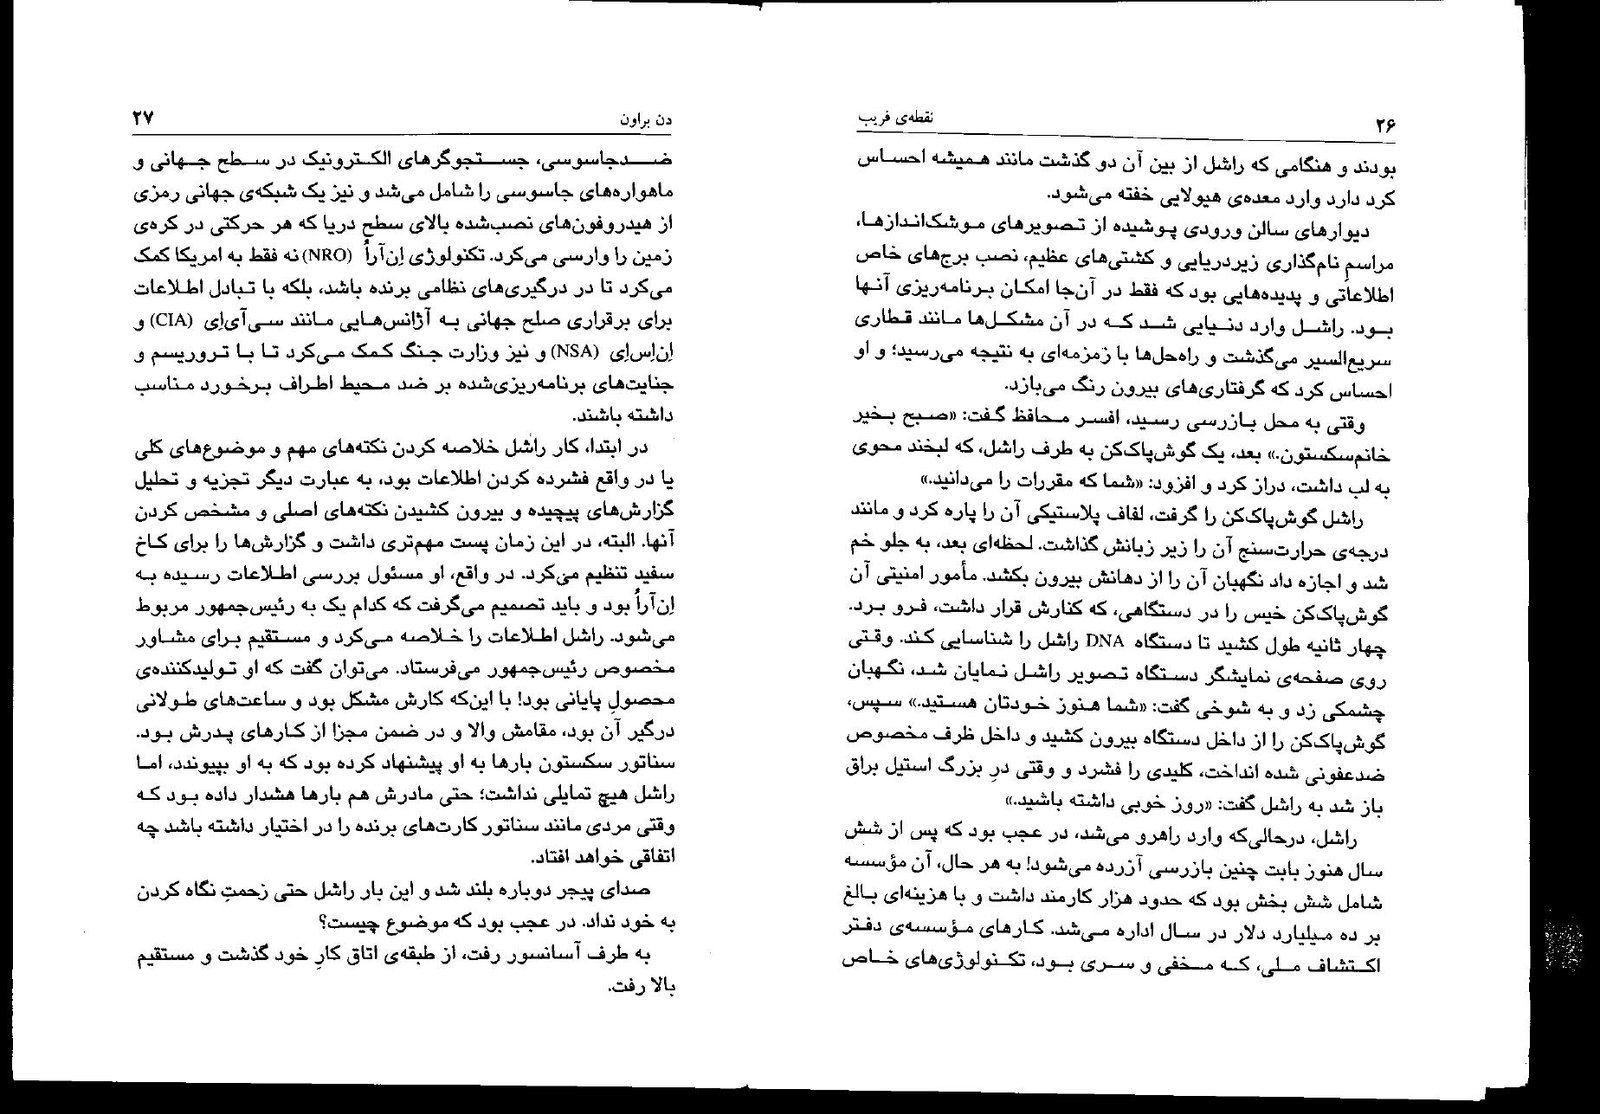 ۲۶
نقطه‌ی فریب
بودند و هنگامی که راشل از بین آن دو گذشت مانند همیشه احساس
کرد دارد وارد معده‌ی هیولایی خفته می‌شود.
دیوارهای سالن ورودی پوشیده از تصویرهای موشک‌اندازها،
مراسم نام‌گذاری زیردریایی و کشتی‌های عظیم، نصب برج‌های خاص
اطلاعاتی و پدیده‌هایی بود که فقط در آن‌جا امکان برنامه‌ریزی آنها
بود. راشل وارد دنیایی شد که در آن مشکل‌ها مانند قطاری
سریع‌السیر می‌گذشت و راه‌حل‌ها با زمزمه‌ای به نتیجه می‌رسید؛ و او
احساس کرد که گرفتاری‌های بیرون رنگ می‌بازد.
وقتی به محل بازرسی رسید، افسر محافظ گفت: «صبح بخیر
خانم‌سکستون.» بعد، یک گوش‌پاک‌کن به طرف راشل، که لبخند محوی
به لب داشت، دراز کرد و افزود: «شما که مقررات را می‌دانید.»
راشل گوش‌پاک‌کن را گرفت، لفاف پلاستیکی آن را پاره کرد و مانند
درجه‌ی حرارت‌سنج آن را زیر زبانش گذاشت. لحظه‌ای بعد، به جلو خم
شد و اجازه داد نگهبان آن را از دهانش بیرون بکشد. مأمور امنیتی آن
گوش‌پاک‌کن خیس را در دستگاهی، که کنارش قرار داشت، فرو برد.
چهار ثانیه طول کشید تا دستگاه DNA راشل را شناسایی کند. وقتی
روی صفحه‌ی نمایشگر دستگاه تصویر راشل نمایان شد، نگهبان
چشمکی زد و به شوخی گفت: «شما هنوز خودتان هستید.» سپس،
گوش‌پاک‌کن را از داخل دستگاه بیرون کشید و داخل ظرف مخصوص
ضدعفونی شده انداخت، کلیدی را فشرد و وقتی درِ بزرگ استیل براق
باز شد به راشل گفت: «روز خوبی داشته باشید.»
راشل، درحالی‌که وارد راهرو می‌شد، در عجب بود که پس از شش
سال هنوز بابت چنین بازرسی آزرده می‌شود! به هر حال، آن مؤسسه
شامل شش بخش بود که حدود هزار کارمند داشت و با هزینه‌ای بالغ
بر ده میلیارد دلار در سال اداره می‌شد. کارهای مؤسسه‌ی دفتر
اکتشاف ملی، که مخفی و سری بود، تکنولوژی‌های خاص
دن براون
۲۷
ضدجاسوسی، جستجوگرهای الکترونیک در سطح جهانی و
ماهواره‌های جاسوسی را شامل می‌شد و نیز یک شبکه‌ی جهانی رمزی
از هیدروفون‌های نصب‌شده بالای سطح دریا که هر حرکتی در کره‌ی
زمین را وارسی می‌کرد. تکنولوژی اِن‌آراُ (NRO) نه فقط به امریکا کمک
می‌کرد تا در درگیری‌های نظامی برنده باشد، بلکه با تبادل اطلاعات
برای برقراری صلح جهانی به آژانس‌هایی مانند سی‌آی‌اِی (CIA) و
اِن‌اِس‌اِی (NSA) و نیز وزارت جنگ کمک می‌کرد تا با تروریسم و
جنایت‌های برنامه‌ریزی‌شده بر ضد محیط اطراف برخورد مناسب
داشته باشند.
در ابتدا، کار راشل خلاصه کردن نکته‌های مهم و موضوع‌های کلی
یا در واقع فشرده کردن اطلاعات بود، به عبارت دیگر تجزیه و تحلیل
گزارش‌های پیچیده و بیرون کشیدن نکته‌های اصلی و مشخص کردن
آنها. البته، در این زمان پست مهم‌تری داشت و گزارش‌ها را برای کاخ
سفید تنظیم می‌کرد. در واقع، او مسئول بررسی اطلاعات رسیده به
اِن‌آراُ بود و باید تصمیم می‌گرفت که کدام یک به رئیس‌جمهور مربوط
می‌شود. راشل اطلاعات را خلاصه می‌کرد و مستقیم برای مشاور
مخصوص رئیس‌جمهور می‌فرستاد. می‌توان گفت که او تولیدکننده‌ی
محصولِ پایانی بود! با این‌که کارش مشکل بود و ساعت‌های طولانی
درگیر آن بود، مقامش والا و در ضمن مجزا از کارهای پدرش بود.
سناتور سکستون بارها به او پیشنهاد کرده بود که به او بپیوندد، اما
راشل هیچ تمایلی نداشت؛ حتی مادرش هم بارها هشدار داده بود که
وقتی مردی مانند سناتور کارت‌های برنده را در اختیار داشته باشد چه
اتفاقی خواهد افتاد.
صدای پیجر دوباره بلند شد و این بار راشل حتی زحمتِ نگاه کردن
به خود نداد. در عجب بود که موضوع چیست؟
به طرف آسانسور رفت، از طبقه‌ی اتاق کارِ خود گذشت و مستقیم
بالا رفت.